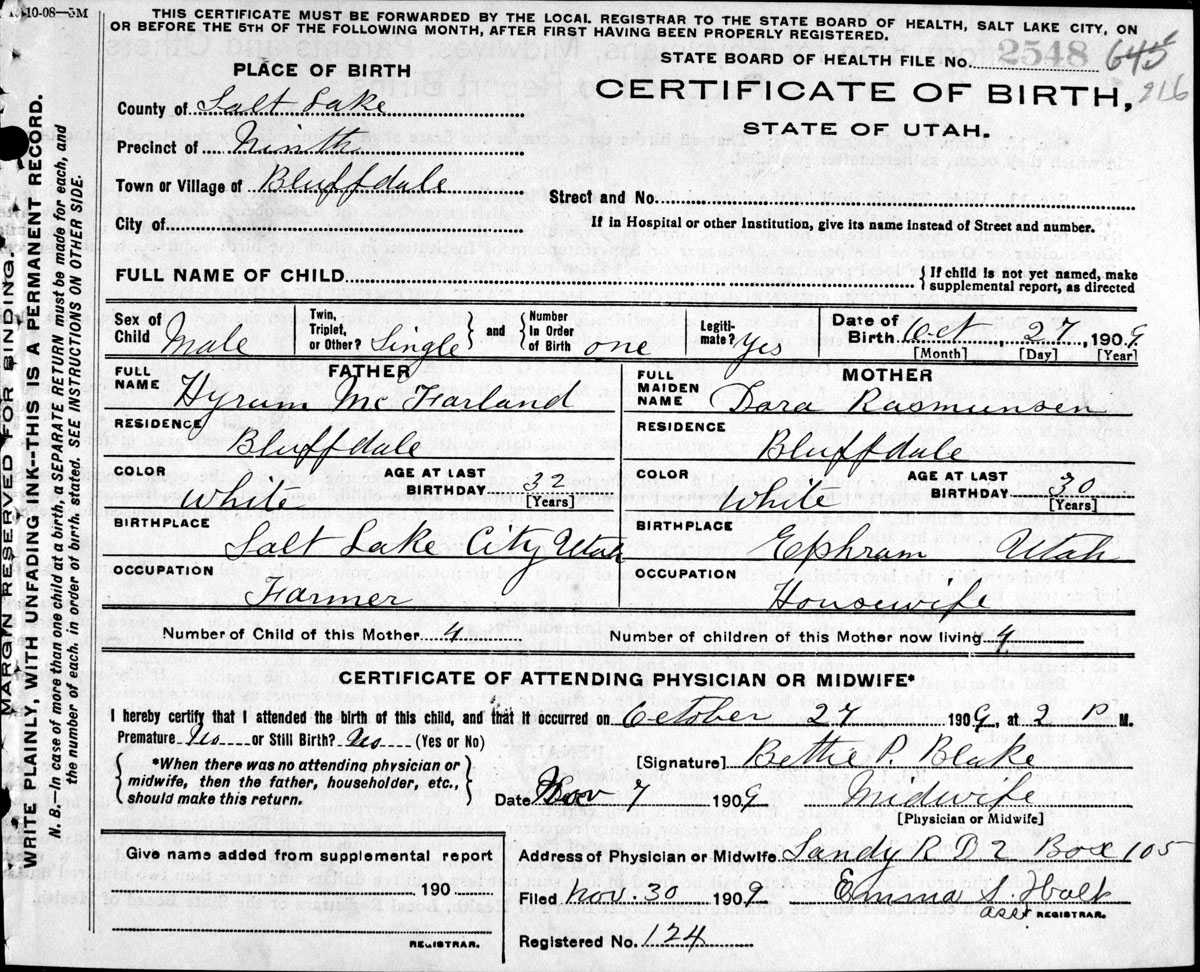 10-08—5M
THIS CERTIFICATE MUST BE FORWARDED BY THE LOCAL REGISTRAR TO THE STATE BOARD OF HEALTH, SALT LAKE CITY, ON
OR BEFORE THE 5TH OF THE FOLLOWING MONTH, AFTER FIRST HAVING BEEN PROPERLY REGISTERED.
STATE BOARD OF HEALTH FILE No. 2548 645
216
PLACE OF BIRTH
CERTIFICATE OF BIRTH,
STATE OF UTAH.
County of Salt Lake
Precinct of Ninth
Town or Village of Bluffdale
Street and No.
City of
If in Hospital or other Institution, give its name instead of Street and number.
FULL NAME OF CHILD
{ If child is not yet named, make
supplemental report, as directed
Sex of Child Male
Twin, Triplet, or Other? Single } and { Number In Order of Birth one
Legiti-mate? Yes
Date of Birth Oct, 27, 1909
[Month] [Day] [Year]
FATHER
FULL NAME Hyrum McFarland
RESIDENCE Bluffdale
COLOR White
AGE AT LAST BIRTHDAY 32 [Years]
BIRTHPLACE Salt Lake City Utah
OCCUPATION Farmer
MOTHER
FULL MAIDEN NAME Dora Rasmunsen
RESIDENCE Bluffdale
COLOR White
AGE AT LAST BIRTHDAY 30 [Years]
BIRTHPLACE Ephram Utah
OCCUPATION Housewife
Number of Child of this Mother 4
Number of children of this Mother now living 4
CERTIFICATE OF ATTENDING PHYSICIAN OR MIDWIFE*
I hereby certify that I attended the birth of this child, and that it occurred on October 27 1909, at 2 P M.
Premature No or Still Birth? No (Yes or No)
{ *When there was no attending physician or
midwife, then the father, householder, etc.,
should make this return. }
[Signature] Bettie P. Blake
Date Nov 7 1909 Midwife
[Physician or Midwife]
Give name added from supplemental report
190
REGISTRAR.
Address of Physician or Midwife Sandy R D 2 Box 105
Filed Nov. 30 1909 Emma S. Holt
asst REGISTRAR.
Registered No. 124
MARGIN RESERVED FOR BINDING.
WRITE PLAINLY, WITH UNFADING INK--THIS IS A PERMANENT RECORD.
N. B.—In case of more than one child at a birth, a SEPARATE RETURN must be made for each, and
the number of each, in order of birth, stated. SEE INSTRUCTIONS ON OTHER SIDE.